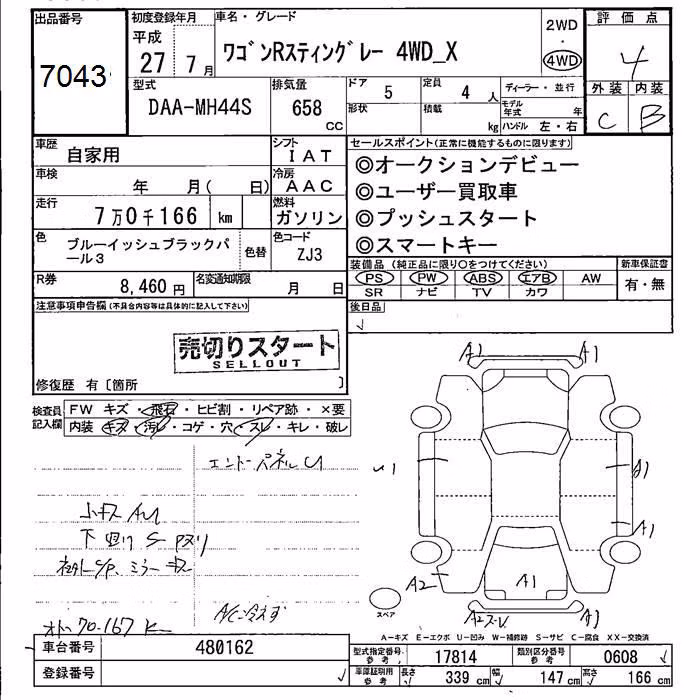 出品番号
7043
初度登録年月
平成
27 7月
車名・グレード
ワゴンRスティングレー 4WD_X
2WD
・
4WD
評価点
4
外装 内装
C B
型式
DAA-MH44S
排気量
658
CC
ドア
5
形状
定員
4 人
積載
kg
ディーラー・並行
モデル年式 年
ハンドル 左・右
車歴
自家用
シフト
IAT
車検
年 月( 日)
冷房
AAC
走行
7万0千166 km
燃料
ガソリン
色
ブルーイッシュブラックパール3
色替
色コード
ZJ3
R券
8,460 円
名変通知期限
月 日
セールスポイント(正常に機能するものに限ります)
◎オークションデビュー
◎ユーザー買取車
◎プッシュスタート
◎スマートキー
装備品(純正品に限り○をつけてください)
PS PW ABS エアB AW
SR ナビ TV カワ
新車保証書
有・無
後日品
注意事項申告欄(不具合内容等は具体的に記入して下さい)
売切りスタート
SELLOUT
修復歴 有〔箇所 〕
検査員記入欄
FW キズ・飛石・ヒビ割・リペア跡・×要
内装 キズ・汚レ・コゲ・穴・スレ・キレ・破レ
エンドーパネルU
小キズ AU
A/C冷えず
A1 A1
A1
A1
A2
A1
A1
スペア
A-キズ E-エクボ U-凹み W-補修跡 S-サビ C-腐食 XX-交換済
車台番号
480162
登録番号
型式指定番号
参考
17814
類別区分番号
参考
0608
車庫証明用
参考
長さ
339 cm
幅
147 cm
高さ
166 cm